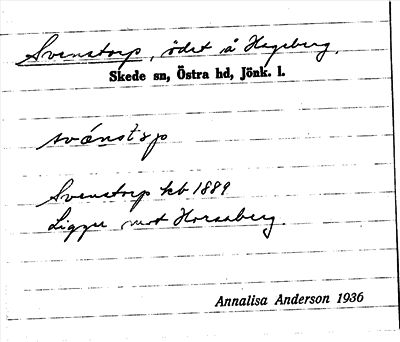 Svenstorp, ödet å Hageberg.
Skede sn, Östra hd, Jönk. l.
svǽnstɔp
Svenstorp kb 1889
Ligger mot Horsaberg.
Annalisa Anderson 1936